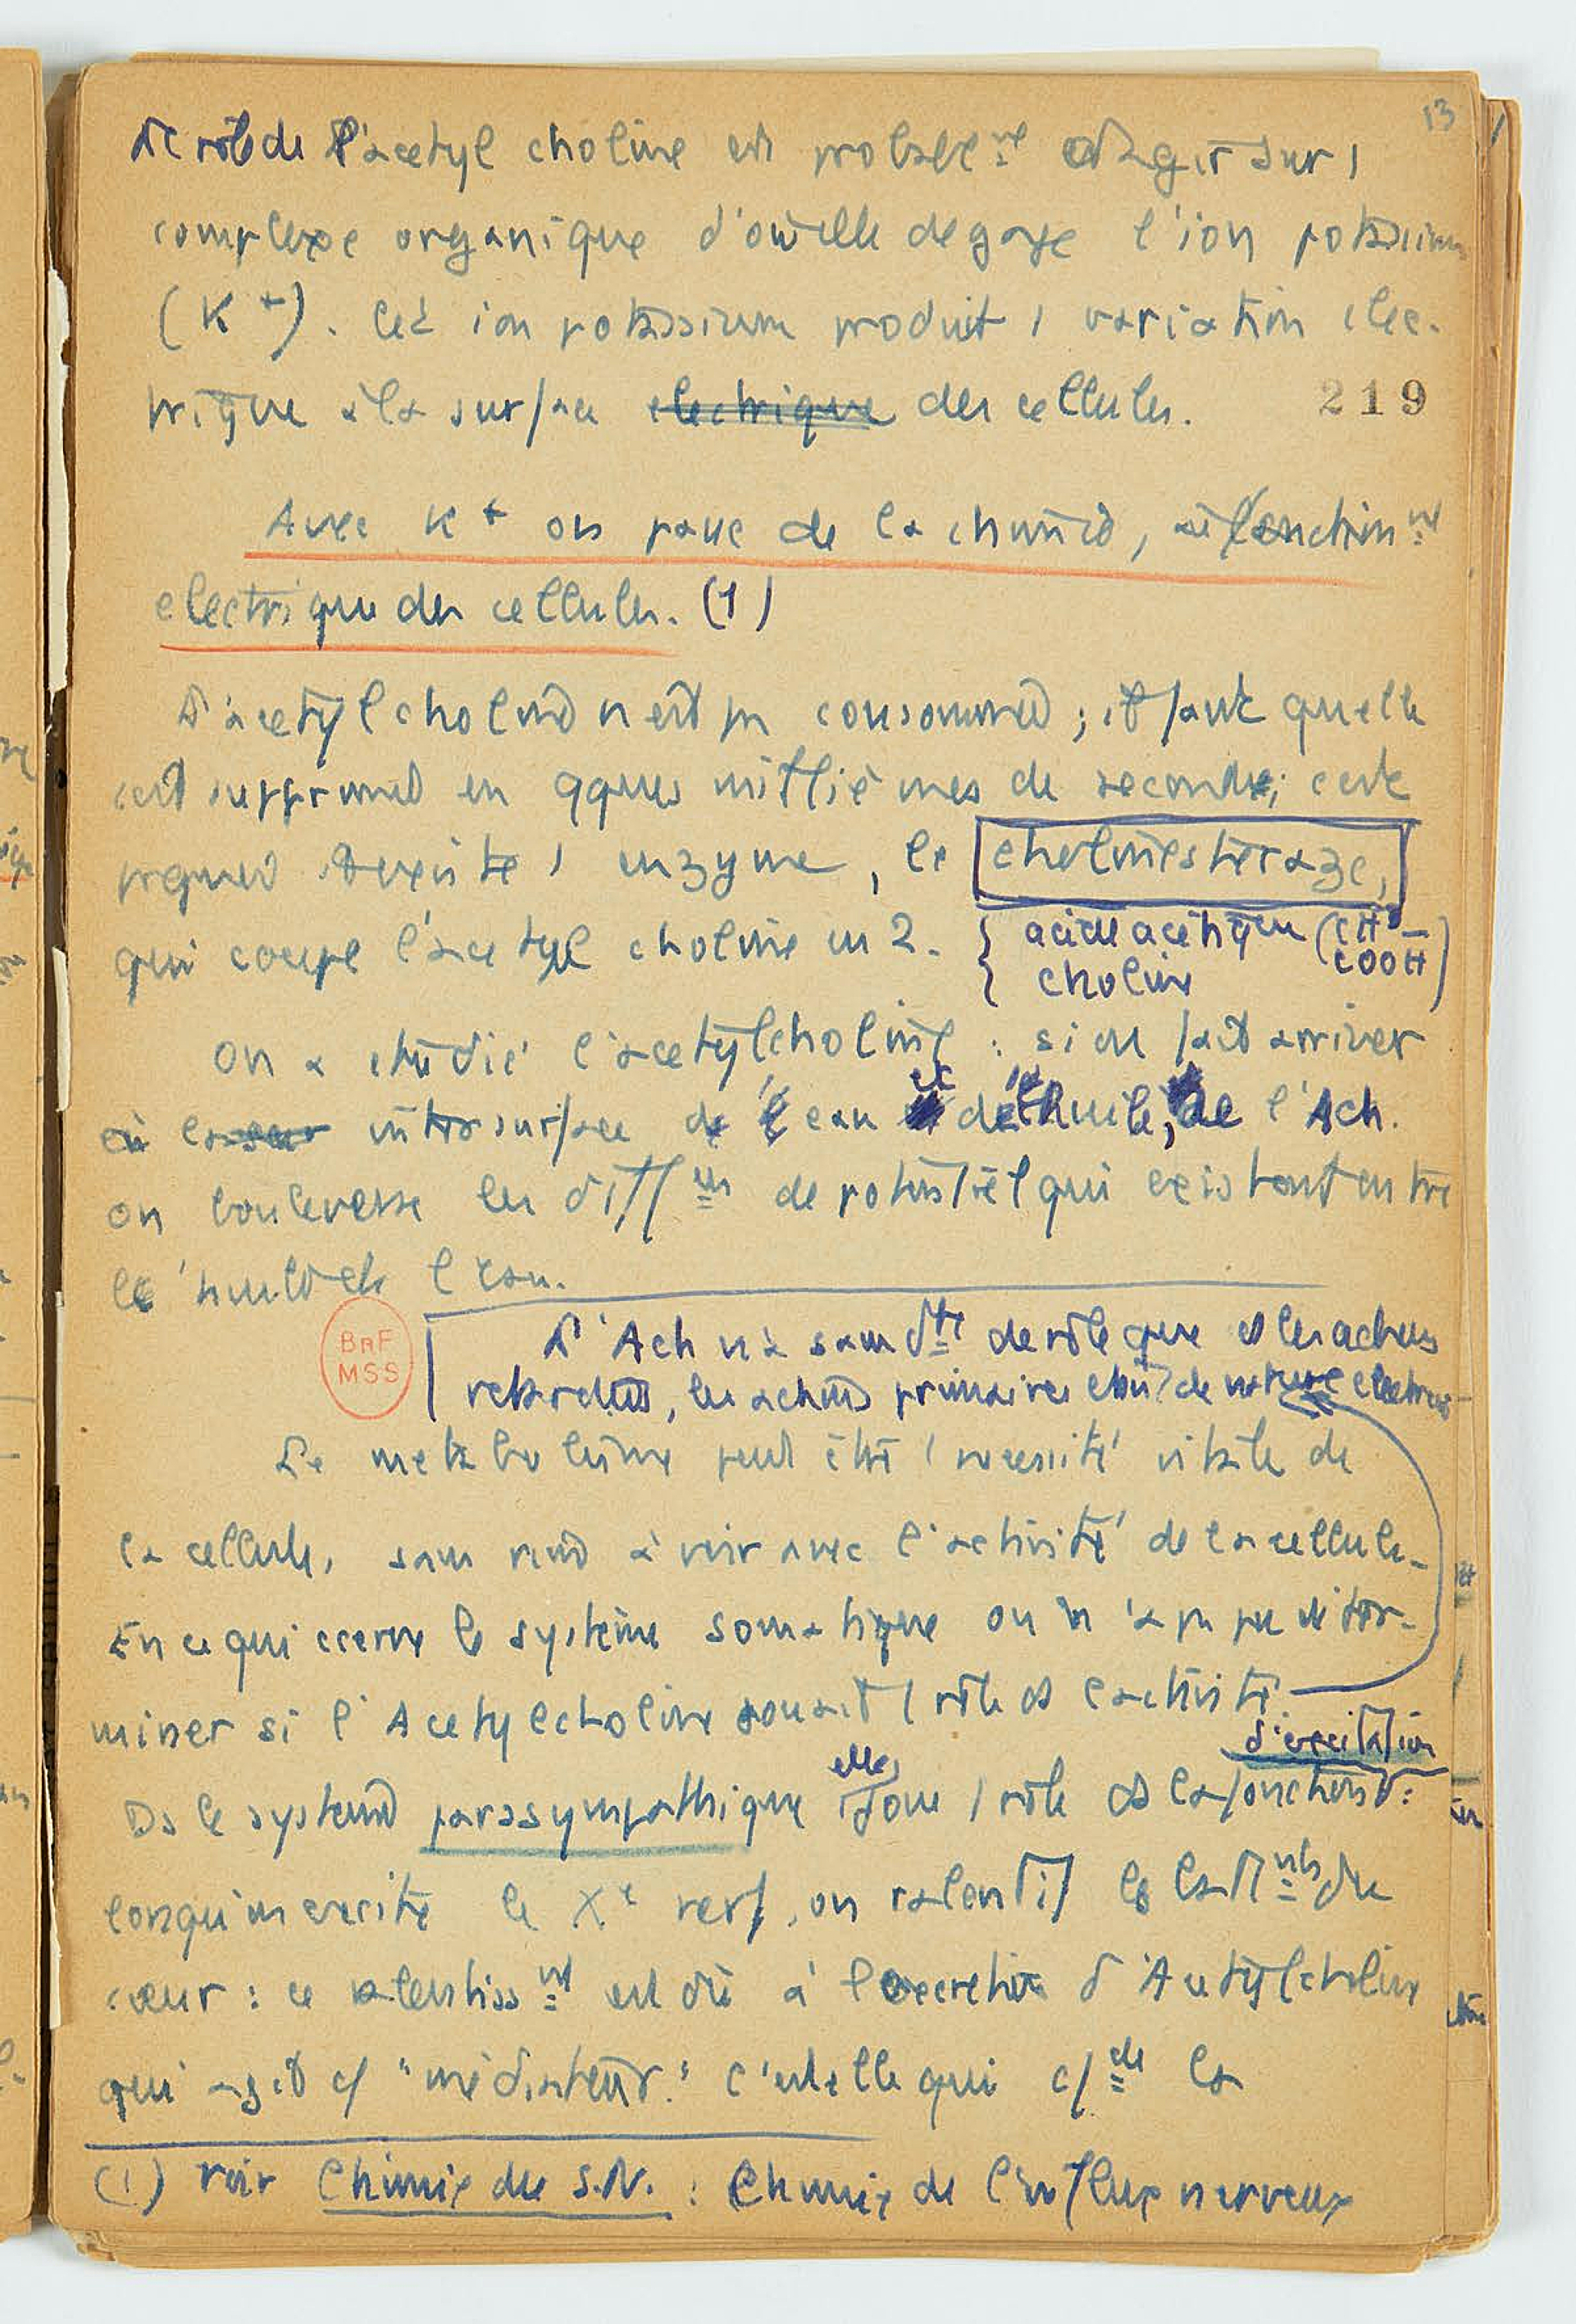 13
Le rôle de l'acetyl choline est probablem^nt d'agir sur 1
complexe organique d'où elle degage l'ion potassium
(K +). Cet ion potassium produit 1 variation elec-
trique à la surface electrique des cellules.
219
Avec K + on passe de la chimie, au fonctionn^nt
electrique des cellules. (1)
L'acetylcholine n'est pas consommée ; il faut qu'elle
soit supprimée en qques millièmes de seconde; cette
existe 1 enzyme, la cholinesteraze,
qui coupe l'acetyl choline en 2. { acide acétique (CH3–COOH)
{ choline
On a etudié l'acetylcholine : si on fait arriver
à la intersurface de l'eau et de l'huile, de l'Ach.
on bouleverse les diff^ces de potentiel qui existent entre
l'huile et l'eau.
BnF
MSS
L'Ach n'a sans d^te de rôle que ds les actions
retardées, les actions primaires etant de nature electrique
Le metabolisme peut être 1 necessité vitale de
la cellule, sans rien à voir avec l'activité de la cellule.
En ce qui ccerne le système somatique on n'a pas pu deter-
miner si l'Acetylcholine jouait 1 rôle ds l'activité.
d'excitation
Ds le systeme parasympathique elle joue 1 rôle ds la fonction :
lorsqu'on excite le X^e nerf, on ralentit les batt^nts du
cœur : ce ralentiss^nt est dû à l'excretion d'Acetylcholine
qui agit c/ "médiateur." c'est elle qui c/^de la
(1) voir Chimie du S.N. : Chimie de l'influx nerveux